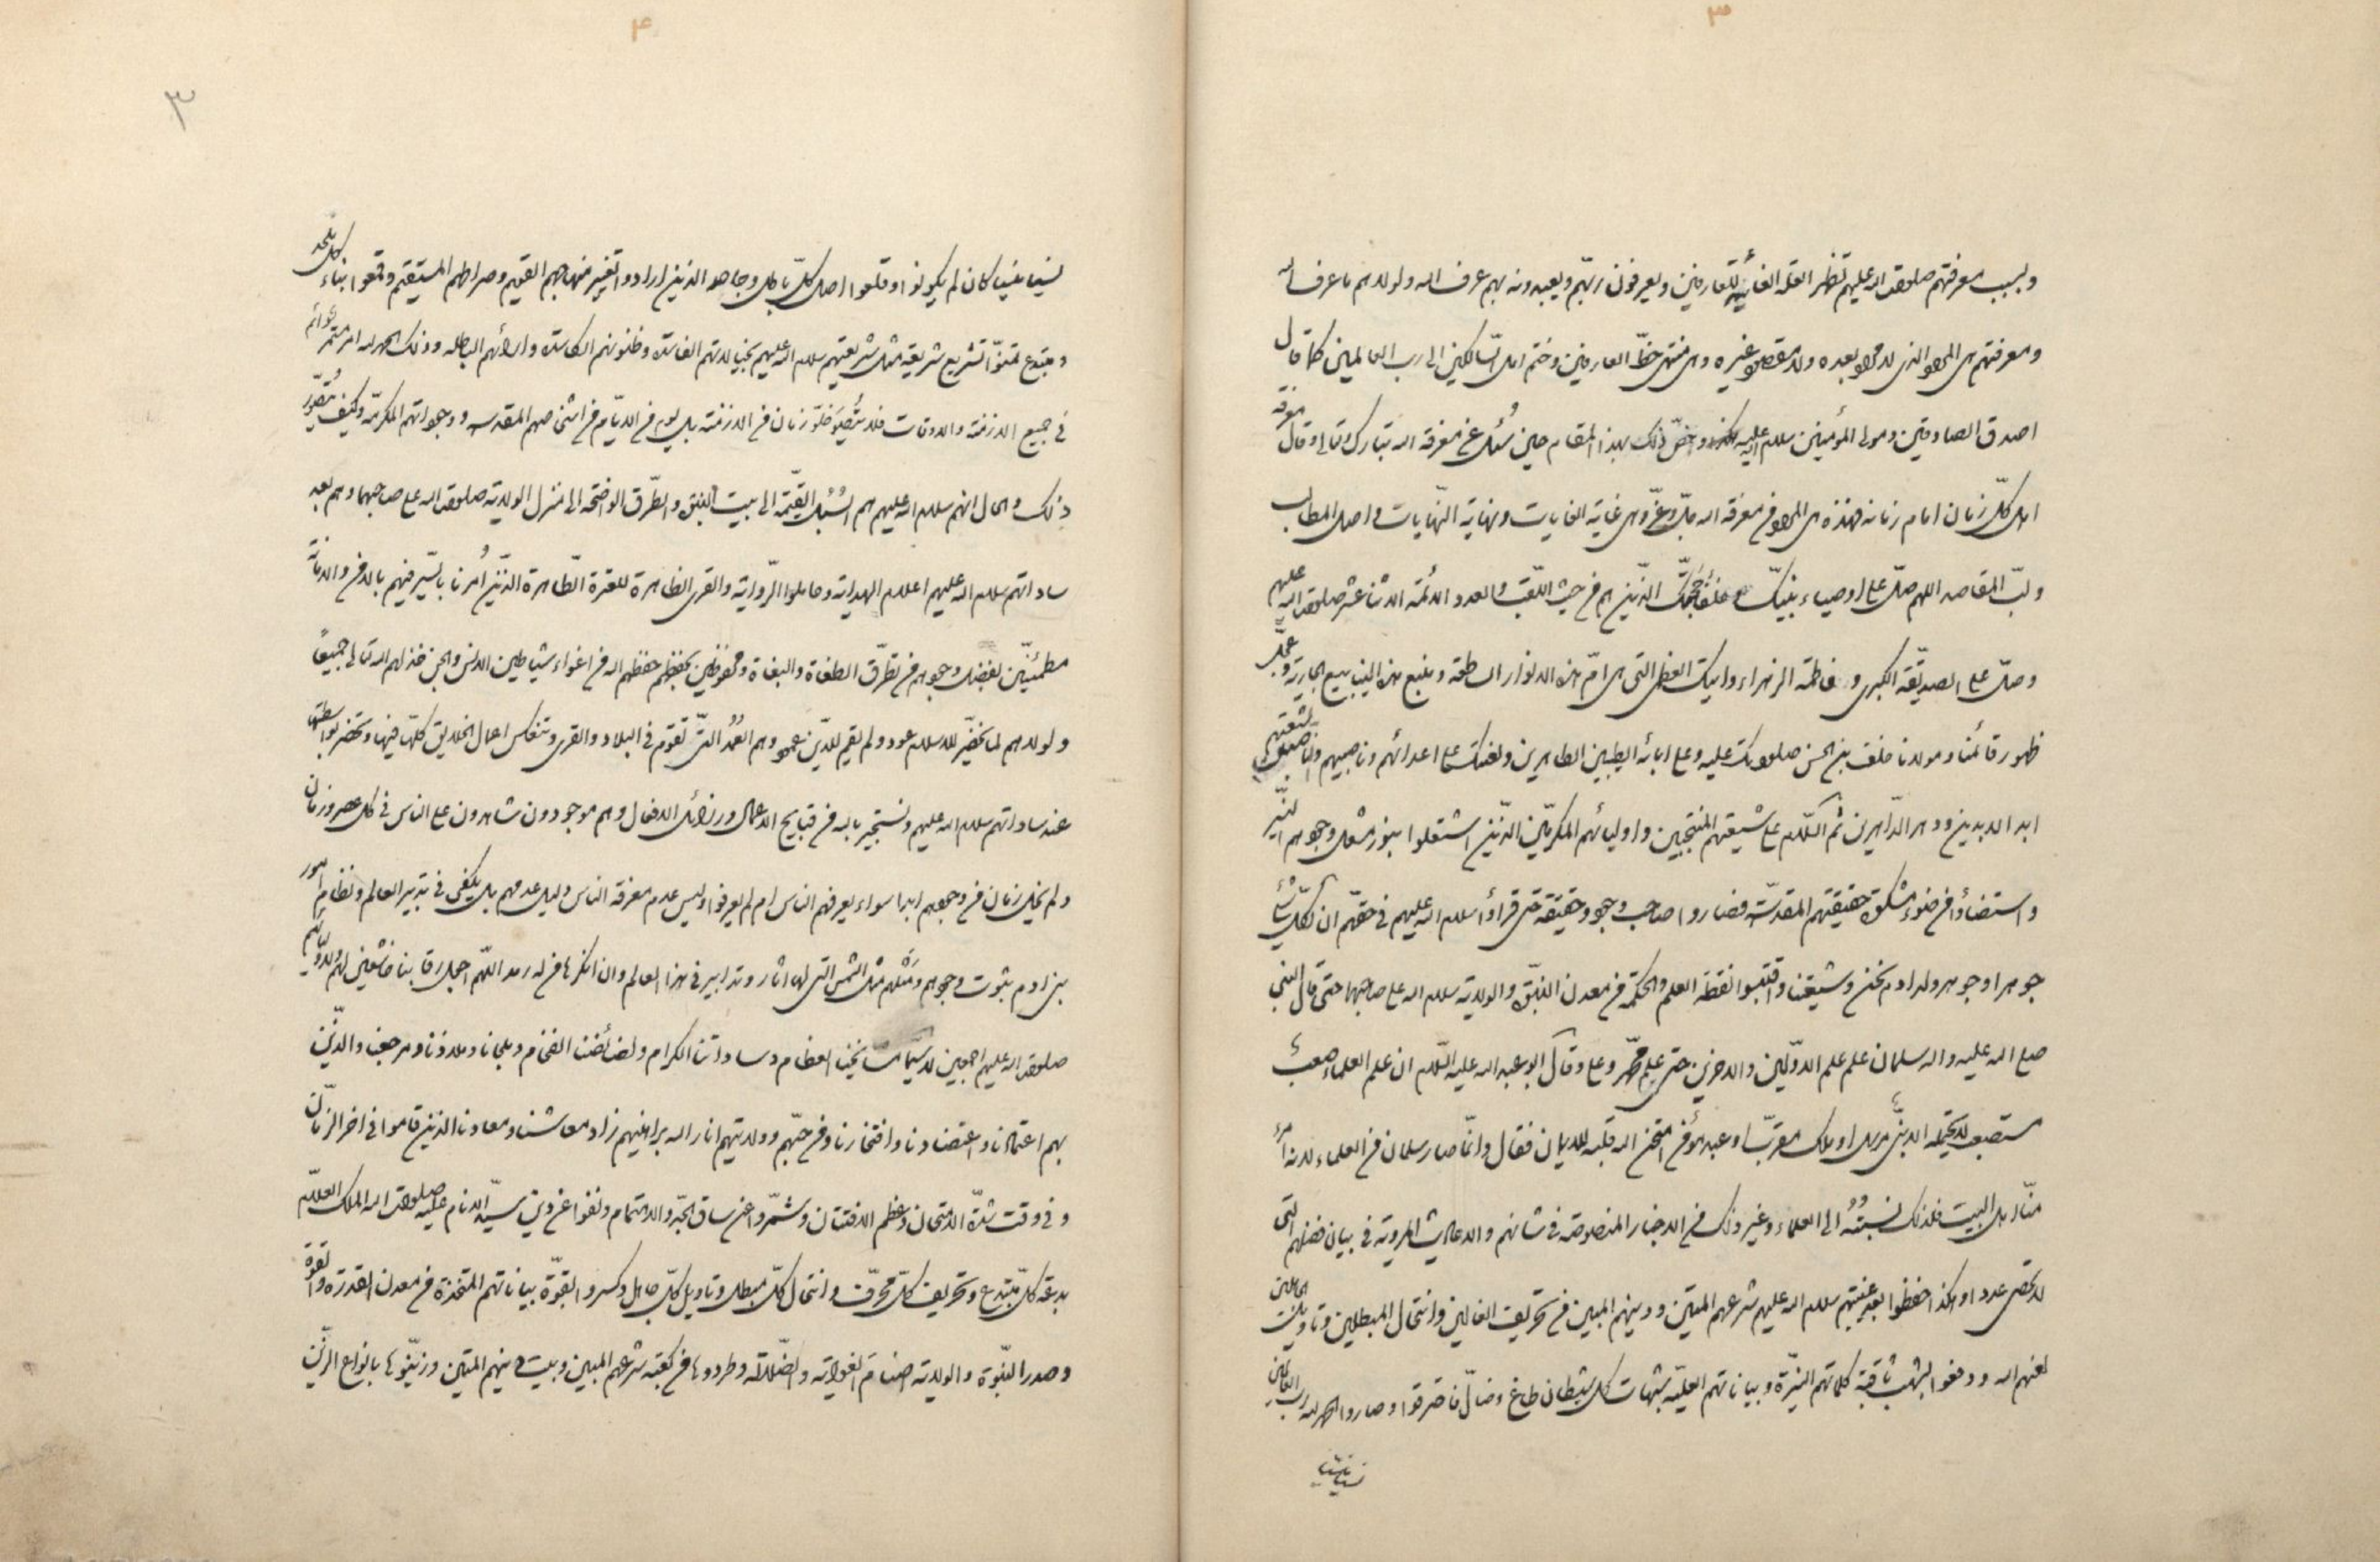 ٣
وبسبب معرفتهم صلوات الله عليهم تظهر العلة الغائية للعارفين ويعرفون ربهم ويعبدونه بهم عرف الله ولولاهم ما عرف الله
ومعرفتهم هي المراد الذي لا مراد بعده ولا مقصود غيره وهي منتهى حظ العارفين وختم امل السالكين الى رب العالمين كما قال
اصدق الصادقين ومولى المؤمنين سلام الله عليه وخص ذلك بهذا المقام حين سئل عن معرفة الله تبارك وتعالى وقال معرفة
اهل كل زمان امام زمانه فهذه هي المراد في معرفة الله جل وعز وهي غاية الغايات ونهاية النهايات واصل المطالب
ولب المقاصد اللهم صل على اوصياء نبيك وخلفاء حجتك الذين هم في حيث اللقب والعدد الائمة الاثنا عشر صلوات الله عليهم
وصل على الصديقة الكبرى وفاطمة الزهراء وايتك العظمى التي هي ام هذه الانوار الساطعة ومنبع هذه الينابيع الجارية وعجل
ظهور قائمنا ومولانا خلف بن الحسن صلواتك عليه وعلى ابائه الطيبين الطاهرين ولعنتك على اعدائهم وناصبيهم
ابد الابدين ودهر الداهرين ثم السلام على شيعتهم المنتجبين واوليائهم المكرمين الذين اشتعلوا بنور مشعل وجودهم النير
واستضاؤا من ضوء مشكوة حقيقتهم المقدسة فصاروا صاحب وجود وحقيقة حتى قراوا سلام الله عليهم في حقهم ان لكل شئ
جوهرا وجوهر ولد ادم نحن وشيعتنا واقتبسوا نقطة العلم والحكمة من معدن النبوة والولاية سلام الله على صاحبها حتى قال النبي
صلى الله عليه واله سلمان علم علم الاولين والاخرين حتى علم محمد وعلي وقال ابو عبد الله عليه السلام ان علم العلماء صعب
مستصعب لا يحتمله الا نبي مرسل او ملك مقرب او عبد مؤمن امتحن الله قلبه للايمان فقال وانما صار سلمان من العلماء لانه امرء
منا اهل البيت فلذلك نسبته الى العلماء وغير ذلك من الاخبار المنصوصة في شانهم والاحاديث المروية في بيان فضلهم التي
لا تحصى عددا وهكذا حفظوا بعد غيبتهم سلام الله عليهم شرعهم المتين ودينهم المبين من تحريف الغالين وانتحال المبطلين وتاويلات الجاهلين
لعنهم الله ودفعوا بشهب ثاقبة كلماتهم النيرة وبياناتهم العلية شبهات كل شيطان طاغ وضال فاحترقوا وصاروا الحمد لله رب العالمين
نسيا منسيا
٤
٣
نسيا منسيا كان لم يكونوا وقلعوا اصل كل باطل وجاحد الذين ارادوا تغيير منهاجهم القويم وصراطهم المستقيم وقمعوا بناء كل ملحد
ومبتدع تشريع شريعة مثل شريعتهم سلام الله عليهم بخيالاتهم الفاسدة وظنونهم الكاسدة وارائهم الباطلة وذلك الحمد لله امر مستمر دائم
في جميع الازمنة والاوقات فلا يتصور خلو زمان من الازمنة بل يوم من الايام من اشخاصهم المقدسه ووجوداتهم المكرمة وكيف يتصور
ذلك والحال انهم سلام الله عليهم هم السبل القيمة الى بيت النبوة والطرق الواضحة الى منزل الولاية صلوات الله على صاحبهما وهم بعد
ساداتهم سلام الله عليهم اعلام الهداية وحاملوا الرواية والقرى الظاهرة للعترة الطاهرة الذين امرنا بالسير فيهم بالامن والامانة
مطمئنين بفضل وجودهم من تطرق الطغاة والبغاة ومحفوظين بحفظهم حفظهم الله من اغواء شياطين الانس والجن خذلهم الله تعالى جميعا
ولولاهم لما يخضر للاسلام عود ولم يقم للدين عمود وهم العمد التي تقوم في البلاد والقرى وتنعكس اعمال الخلايق كلها فيها وتحضر بواسطتها
عند ساداتهم سلام الله عليهم ونستجير بالله من قبايح الاعمال ورذائل الافعال وهم موجودون شاهدون على الناس في كل عصر وزمان
ولم يخل زمان من وجودهم ابدا سواء يعرفهم الناس ام لم يعرفوا وليس عدم معرفة الناس دليل عدمهم بل يكفي في تدبير العالم ونظام امور
بني ادم ثبوت وجودهم ومثلهم مثل الشمس التي لها اثار وتدابير في هذا العالم وان انكرها من له رمد اللهم اجعل رقابنا خاشعين لهم ولاوليائهم
صلوات الله عليهم اجمعين لا سيما مشايخنا العظام وساداتنا الكرام ولضائفنا الفخام وملجانا وملاذنا ومرجعنا والذين
بهم اعتمادنا واعتضادنا وافتخارنا ومن حبهم وولايتهم انار الله براهينهم زاد معاشنا ومعادنا الذين قاموا في اخر الزمان
وفي وقت شدة الامتحان وعظم الافتتان وشمروا عن ساق الجد والاهتمام ونفوا عن دين سيد الانام عليه صلوات الله الملك العلام
بدعة كل مبتدع وتحريف كل محرف وانتحال كل مبطل وتاويل كل جاهل وكسروا بقوة بياناتهم المتخذة من معدن القدرة والقوة
وصدر النبوة والولاية اصنام الغواية والضلالة وطردوها من كعبة شرعهم المبين وبيت دينهم المتين وزينوها بانواع الزين